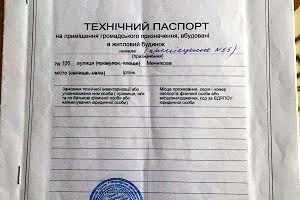 ТЕХНІЧНИЙ ПАСПОРТ
на приміщення громадського призначення, вбудовані
в житловий будинок
нежиле приміщення №55
(призначення)
№ 100 вулиця (провулок, площа) Мечнікова
місто (селище, село) Ірпінь
Замовник технічної інвентаризації або
уповноважена ним особа ( прізвище, ім'я
та по батькові фізичної особи або
найменування юридичної особи)
Місце проживання, серія , номер
паспорта фізичної особи або
місцезнаходження, код за ЄДРПОУ
юридичної особи